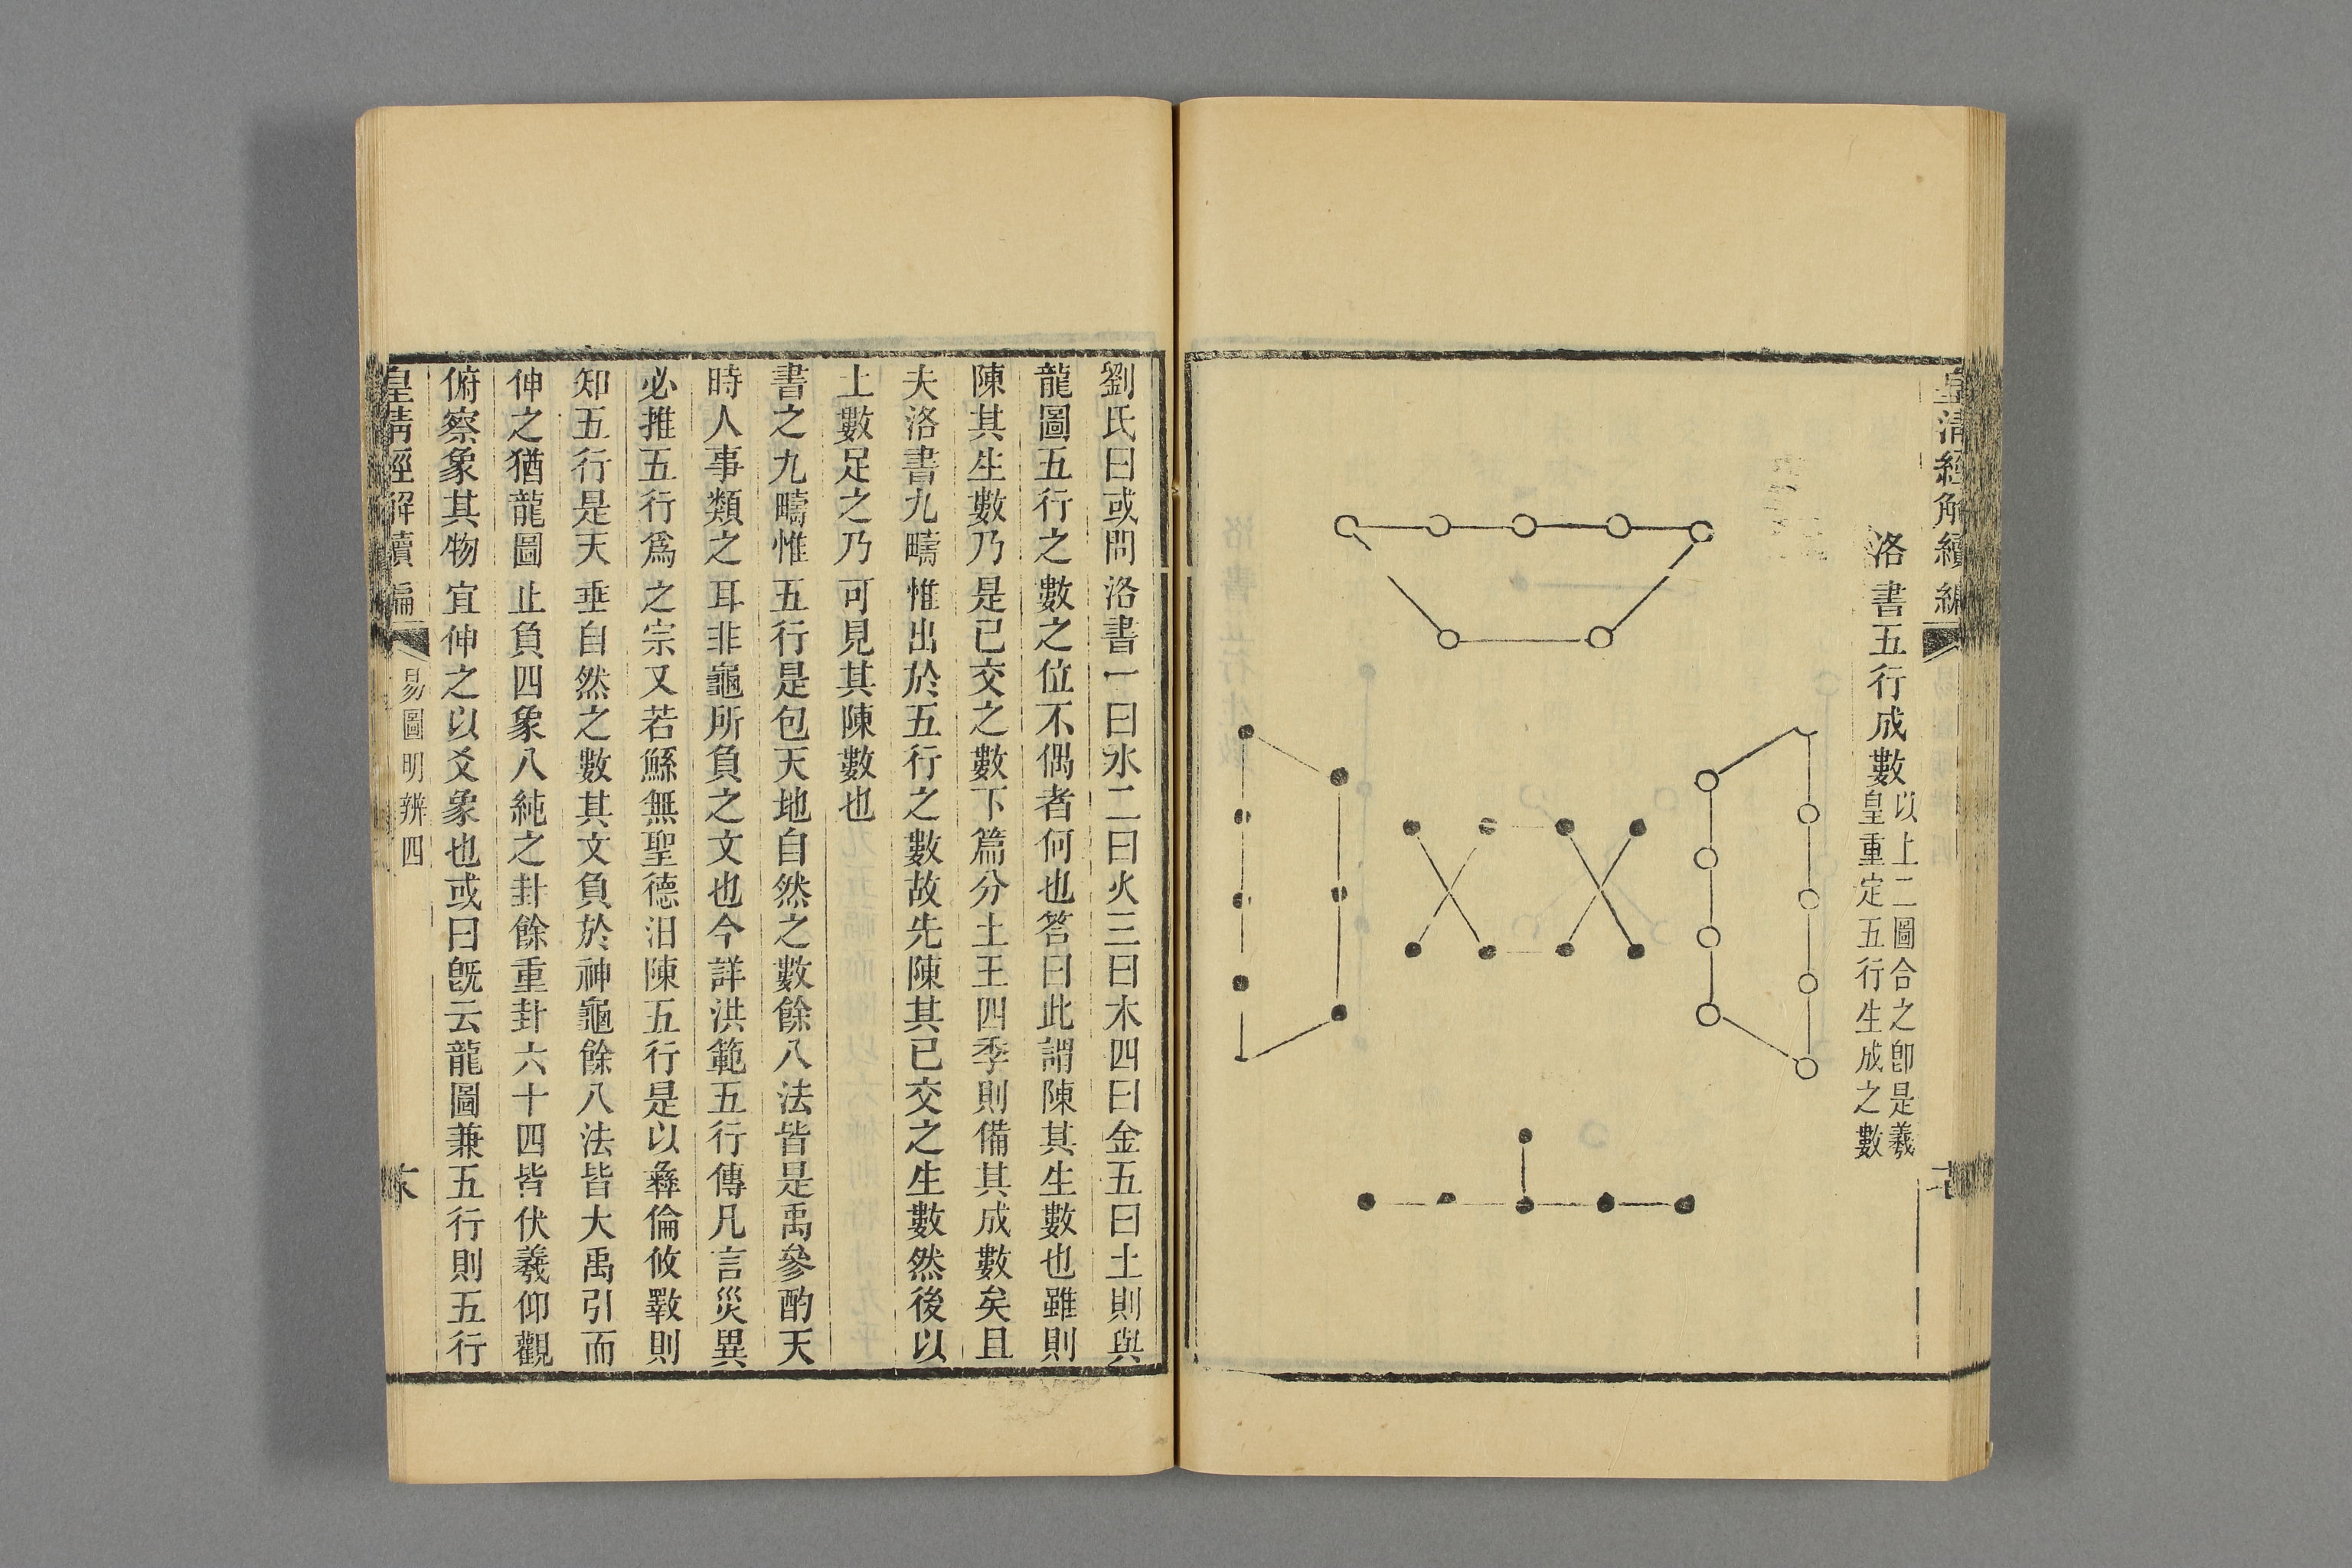 皇清經解續編
洛書五行成數
以上二圖合之卽是羲
皇重定五行生成之數
劉氏曰或問洛書一曰水二曰火三曰木四曰金五曰土則與
龍圖五行之數之位不偶者何也答曰此謂陳其生數也雖則
陳其生數乃是已交之數下篇分土王四季則備其成數矣且
夫洛書九疇惟出於五行之數故先陳其已交之生數然後以
土數足之乃可見其陳數也
書之九疇惟五行是包天地自然之數餘八法皆是禹參酌天
時人事類之耳非龜所負之文也今詳洪範五行傳凡言災異
必推五行爲之宗又若鯀無聖德汨陳五行是以彝倫攸斁則
知五行是天垂自然之數其文負於神龜餘八法皆大禹引而
伸之猶龍圖止負四象八純之卦餘重卦六十四皆伏羲仰觀
俯察象其物宜伸之以爻象也或曰旣云龍圖兼五行則五行
皇清經解續編
易圖明辨四